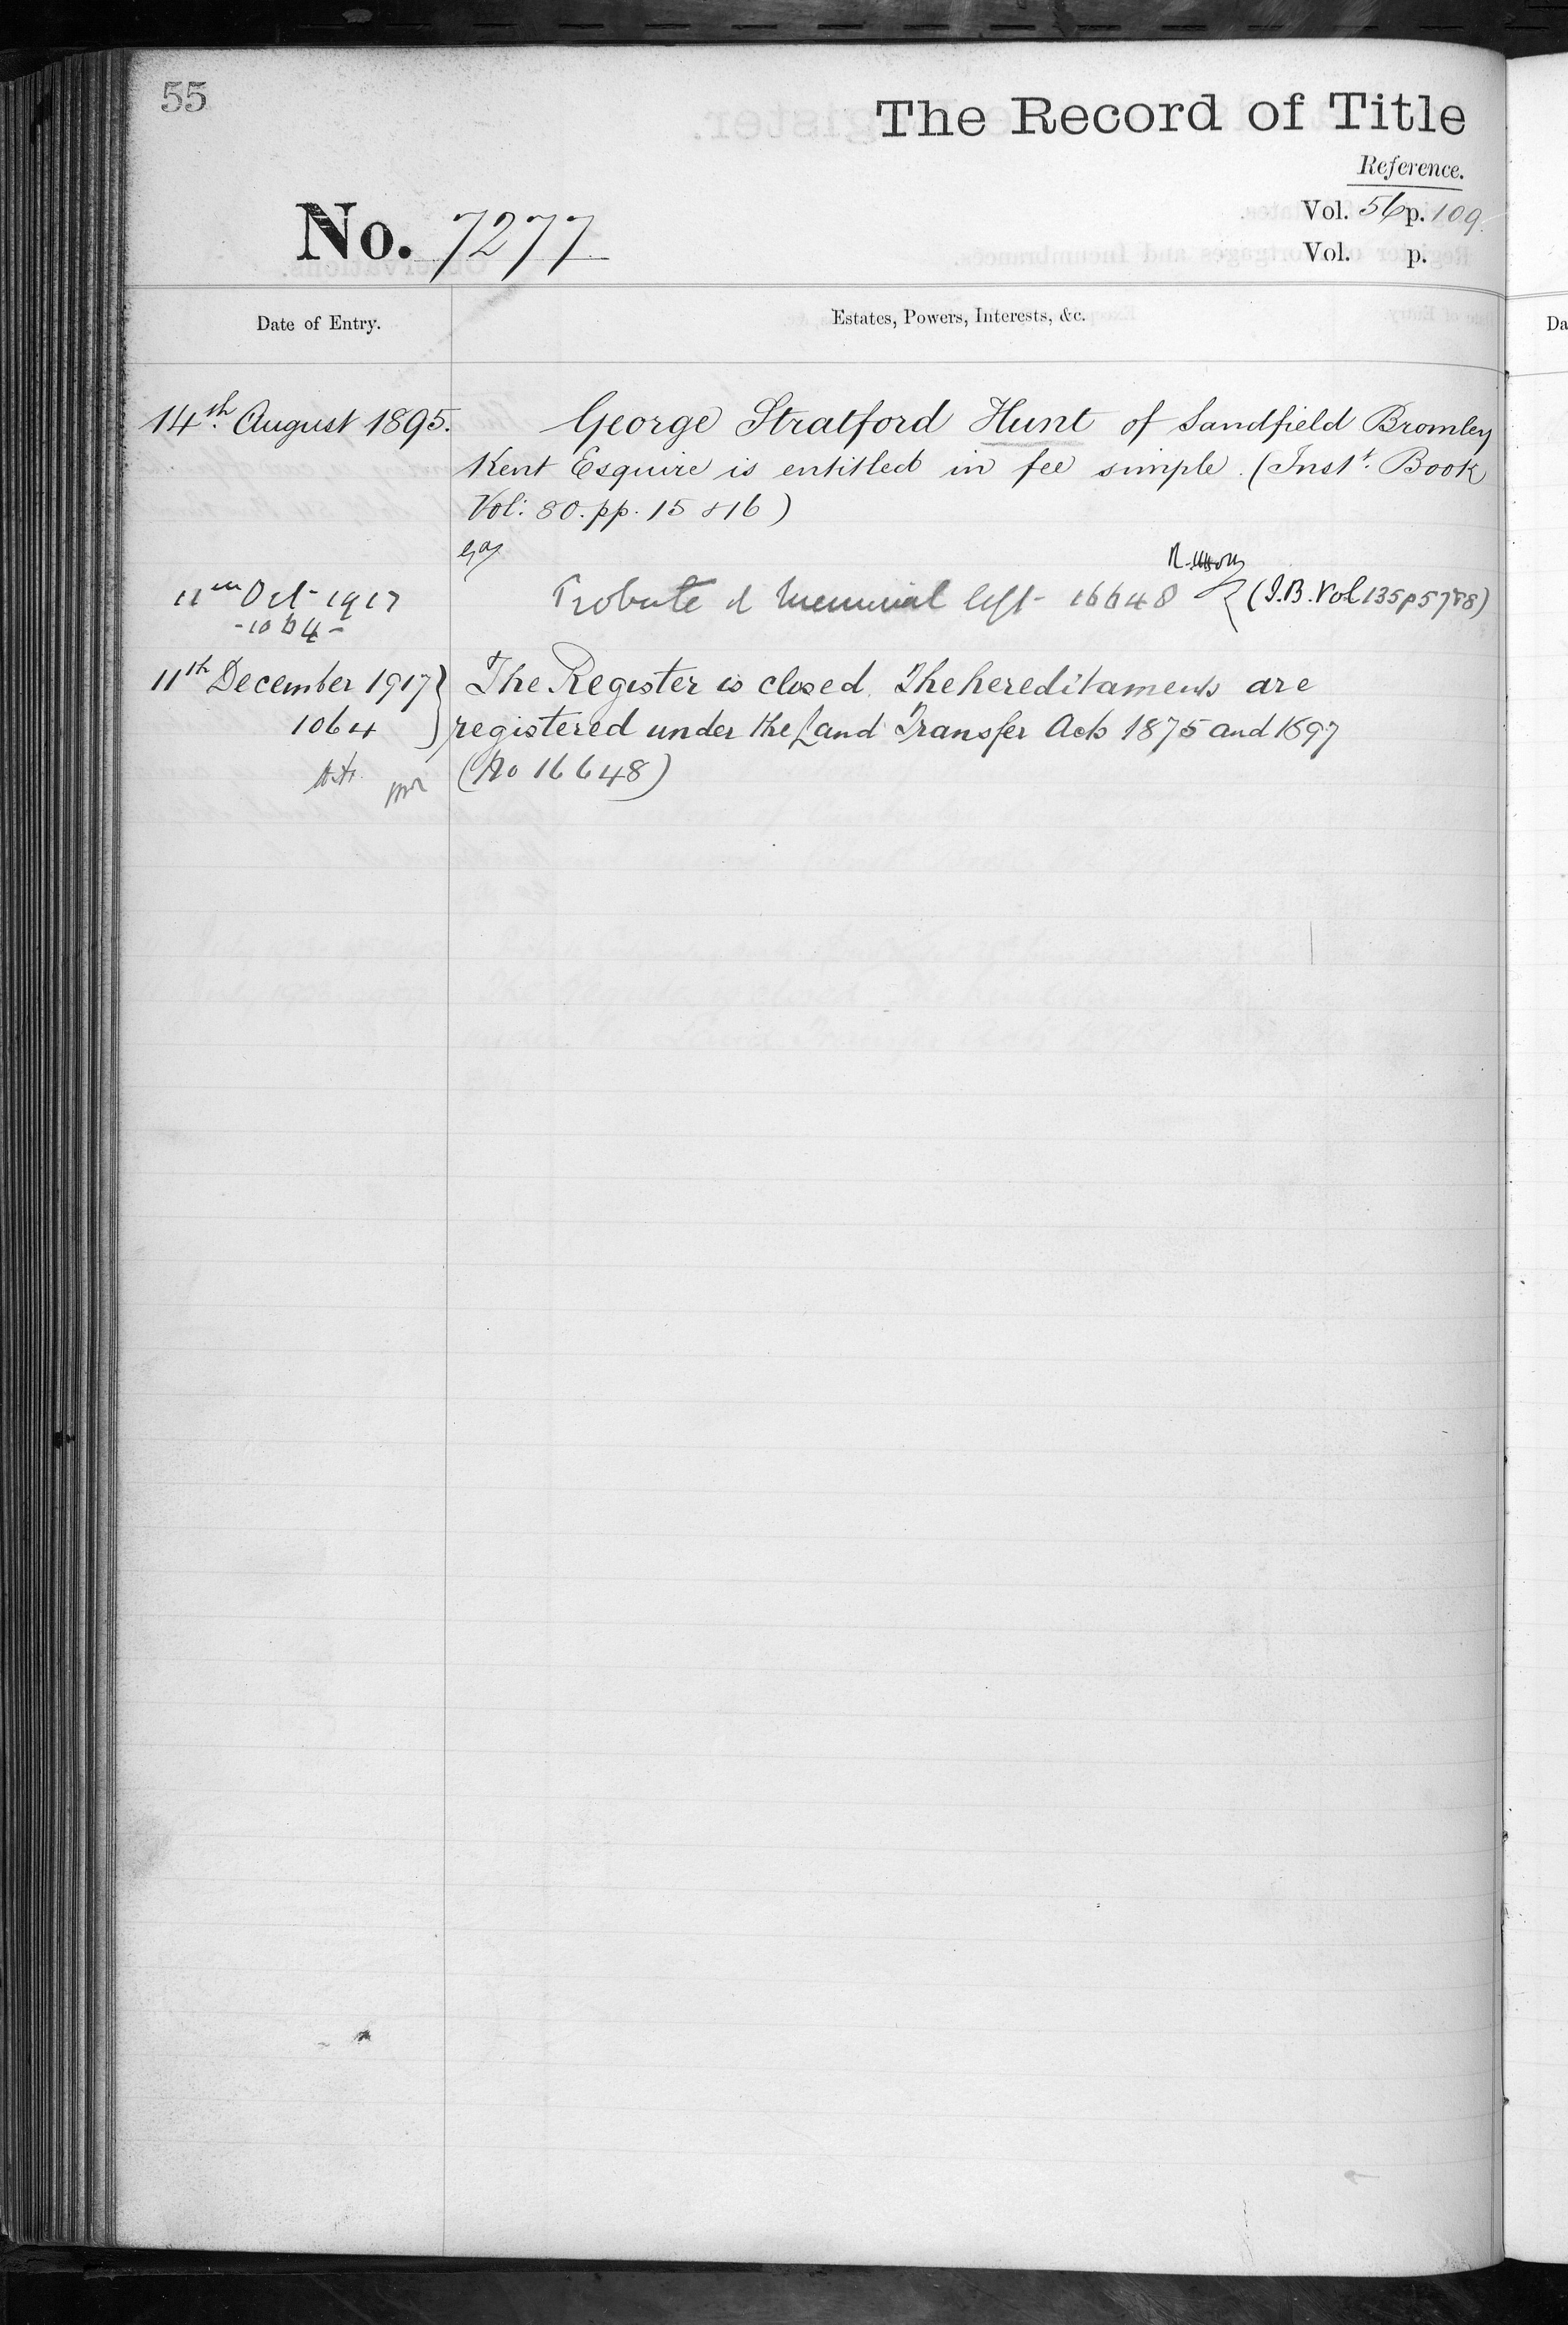 55
The Record of Title
Reference.
No. 7277
Vol. 56 p. 109
Vol. p.
Date of Entry.
Estates, Powers, Interests, &c.
14th August 1895.
George Stratford Hunt of Sandfield Bromley
Kent Esquire is entitled in fee simple. (Inst. Book
Vol: 80. pp. 15 & 16)
11th Oct 1917
Probate & Memorial left - 16648 (I.B. Vol 135 p 57
-1064-
11th December 1917
The Register is closed. The hereditaments are
1064
registered under the Land Transfer Acts 1875 and 1897
(No 16648)
Da